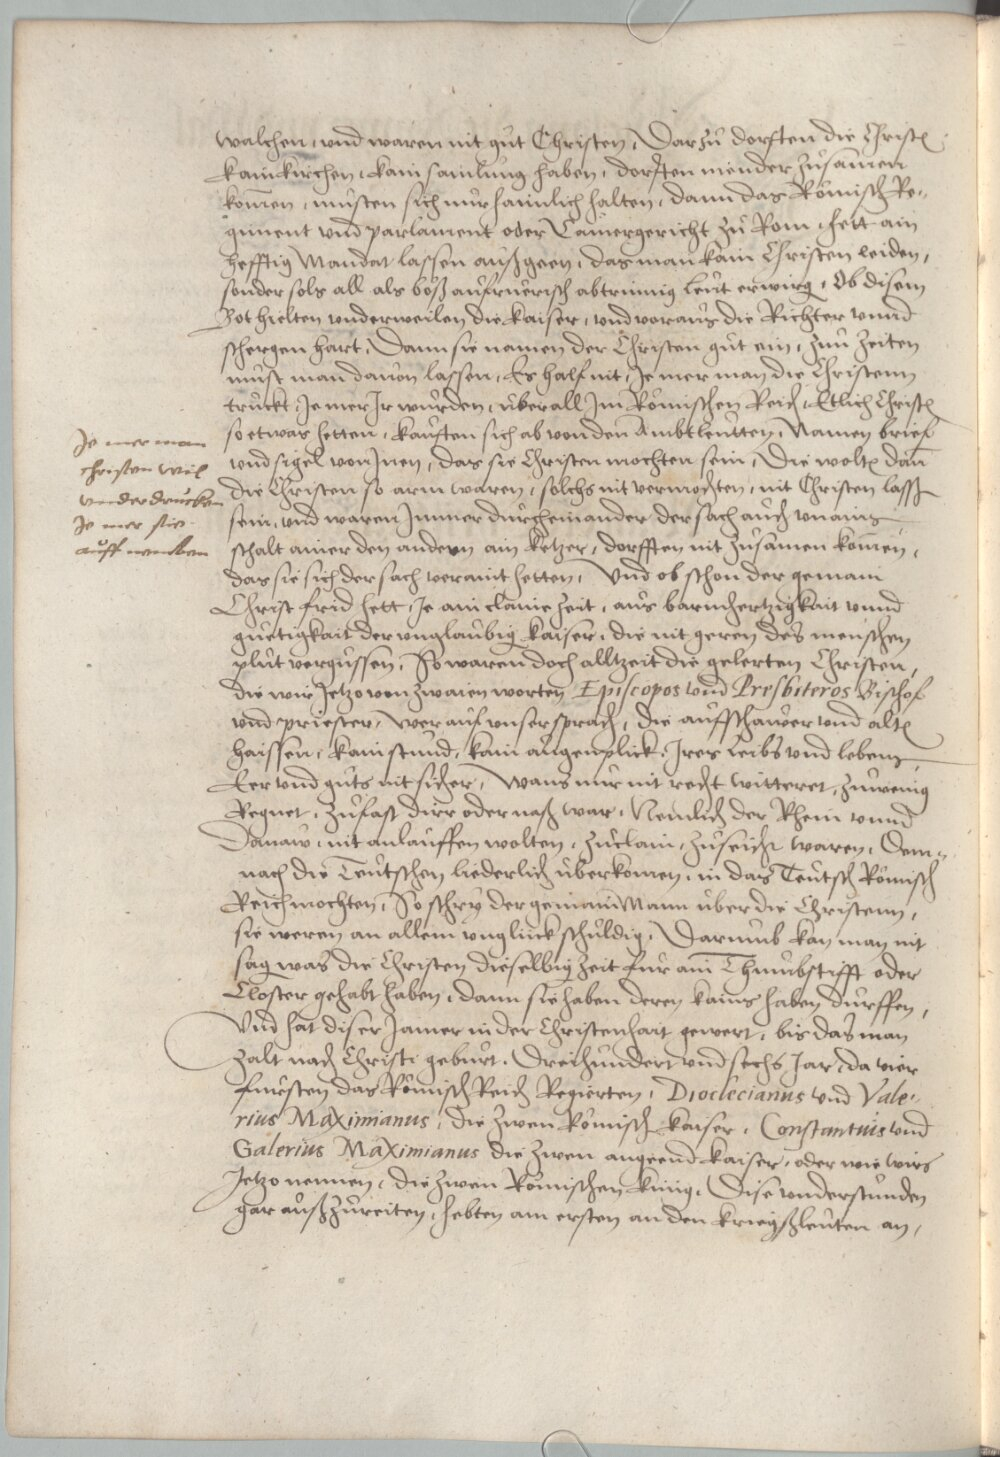 walchen, und waren nit gut Christen, Darzů dorfften die Christ̄
kain kirchen, kain samlung haben, dorfften niender zusamen
komen, musten sich nur haimlich halten, dann das Römisch Re-
giment und parlament oder Camergericht zů Rom, hett ain
hefftig Mandat lassen außgeen, das man kain Christen leiden,
sonder sols all als böß aufruerisch abtrünnig leut erwürg, Ob disem
Bot hielten underweilen die kaiser, und voraus die Richter unnd
schergen hart, Dann sie namen der Christen gůt ein, zun zeiten
must man davon lassen, Es half nit, Je mer man die Christenn
truckt, Je mer Jr wurden, uberall Jm Römischen Reich, Etlich Christ̄
so etwas hetten, kauften sich ab von den Ambtleutten, Namen brief
und sigel von Jnen, das sie Christen mochten sein, Die wolt̄ dan̄
die Christen so arm waren, solchs nit vermochten, nit Christen lass̄
sein, und waren Jmmer durcheinander der sach auch unains
schalt ainer den andern ain ketzer, dorfften nit zusamen komen,
das sie sich der sach veraint hetten, Und ob schon der gemain
Christ frid hett, Je ain claine zeit, aus barmhertzigkait unnd
guetigkait der unglaubig kaiser, die nit geren des menschen
plut vergussen, So waren doch alltzeit die gelerten Christen,
die wir Jetzo von zwaien worten Episcopos und Presbiteros Bischof
und priester, wer auf unser sprach, die aufschawer und alt̄
haissen, kain stund, kain augenplick, Jres leibs und lebens,
Eer und guts nit sicher, wans nur nit recht witteret, zuwenig
Regnet, zufast dirr oder naß war, Nemlich der Rhein unnd
Donaw, nit anlauffen wolten, zuclain, zuseicht waren, Dem-
nach die Teutschen liederlich uberkomen, in das Teutsch Römisch
Reich mochten, So schry der gemain Mann uber die Christenn,
sie weren an allem unglück schuldig, Darumb kan man nit
sag was die Christen dieselbig zeit fur ain Thumbstifft oder
Closter gehabt haben, dann sie haben deren kains haben durffen,
Und hat diser Jamer in der Christenhait gewert, bis das man
zalt nach Christi geburt, Dreihundert und sechs Jar, da vier
fursten das Römisch Reich Regierten, Dioclecianus und Vale-
rius Maximianus, die zwen Römisch kaiser, Constantius und
Galerius Maximianus die zwen angeend kaiser, oder wie wirs
Jetzo nennen, die zwen Römischen künig, Dise understunden
gar außzureiten, hebten am ersten an den kriegßleuten an,
Je mer man
christen wil
underdrucken
Je mer sie
auff